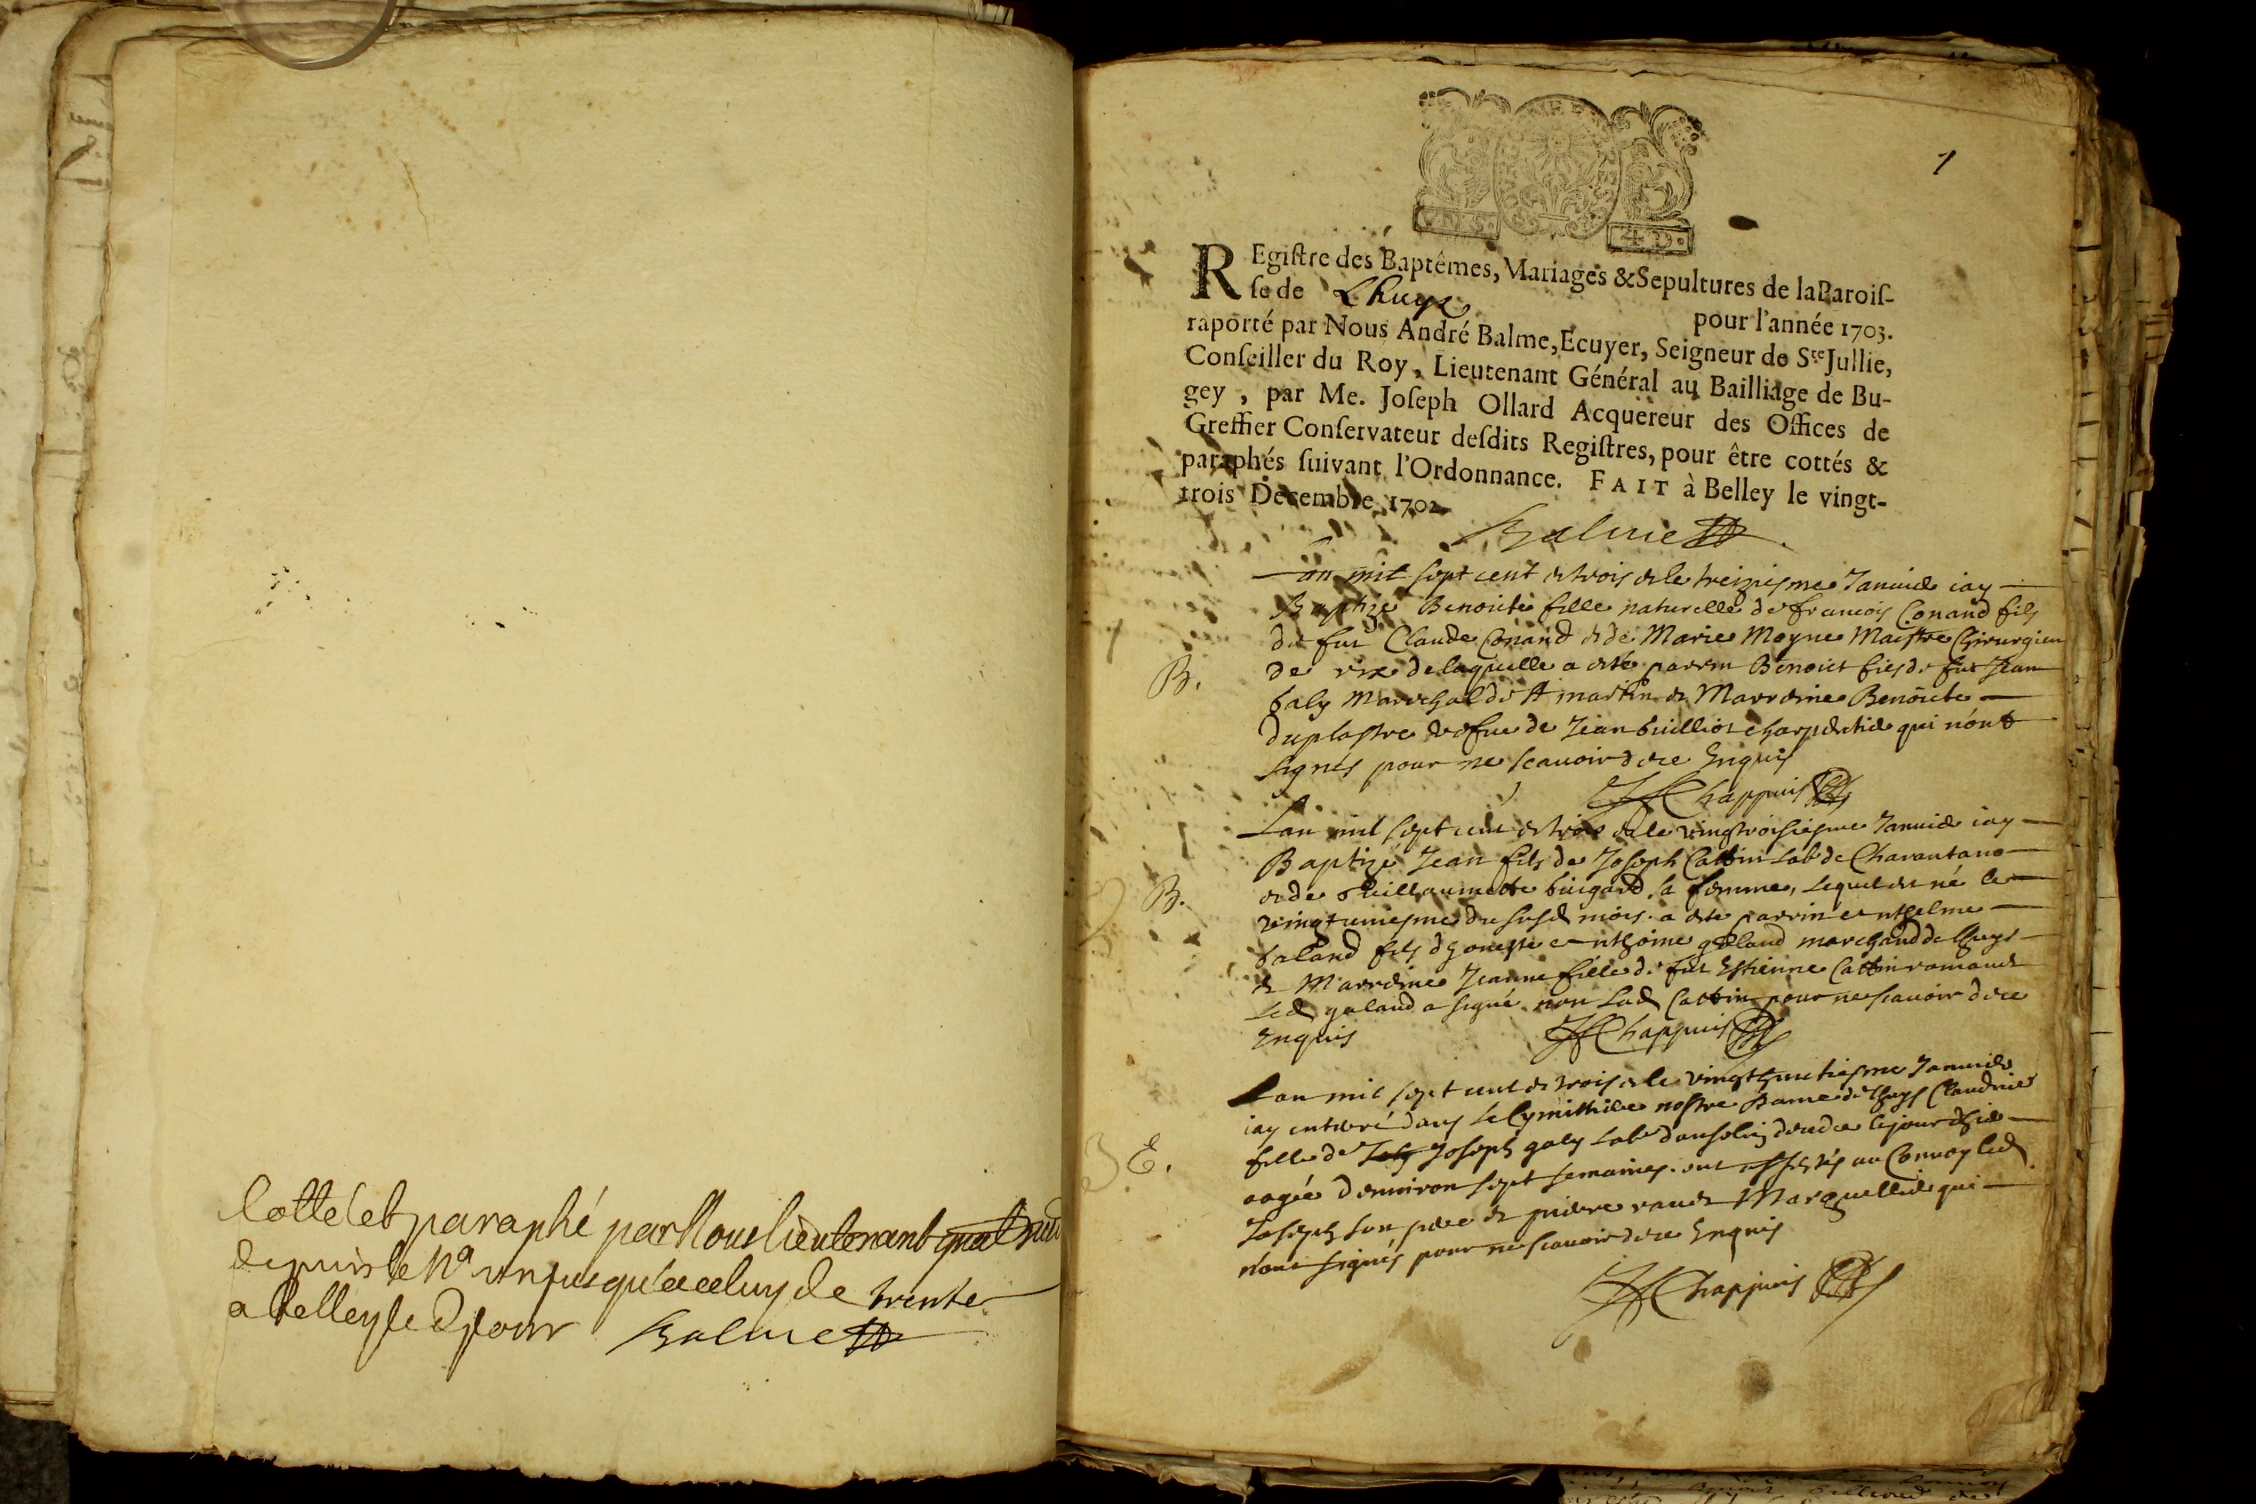 Cotté et paraphé par Nous lieutenant
depuis le No un jusqu'a celuy de trente
a Belley le d jour Balme
1
4 D.
REgiſtre des Baptêmes, Mariages & Sepultures de la Paroiſ-
ſe de Lhuys pour l'année 1703.
raporté par Nous André Balme, Ecuyer, Seigneur de Ste Jullie,
Conſeiller du Roy, Lieutenant Général au Bailliage de Bu-
gey, par Me. Joſeph Ollard Acquereur des Offices de
Greffier Conſervateur deſdits Regiſtres, pour être cottés &
paraphés ſuivant l'Ordonnance. FAIT à Belley le vingt-
trois Decembre 1702
Balme
Lan mil sept cent et trois et le treiziesme Januier iay
Baptize Benoite fille naturelle de francois Conand fils
de fut Claude Conand et de Marie Moyne Maistre Chirurgien
B. de laquelle a esté parrin Benoict fils de fut Jean
galy Mareschal de st martin et Marreine Benoite
duplastre vefue de Jean charpentier qui nont
signés pour ne scauoir de ce Enquis
Chappuis
Lan mil sept cent et trois et le vingttroisiesme Januier iay
Baptizé Jean fils de Joseph Cattin Lab de Charantano
B. et de Guillaumette sa femme, lequel est né le
vingtuniesme du susd mois. a esté parrin Anthelme
galand fils dhoneste Anthoine galand marchand de lhuys
et Marreine Jeanne fille de fut Estienne Cattin
Led galand a signé non Lad Cattin pour ne scauoir de ce
Enquis Chappuis
Lan mil sept cent et trois et le vingthuictiesme Januier
iay enterré dans le Cymittiere nostre Dame de lhuys Claudine
E. fille de Joseph galy Lab
aagée denuiron sept semaines. ont assistés au Conuoy led
Joseph son pere et pierre Marguellier qui
nont signés pour ne scauoir de ce Enquis
Chappuis